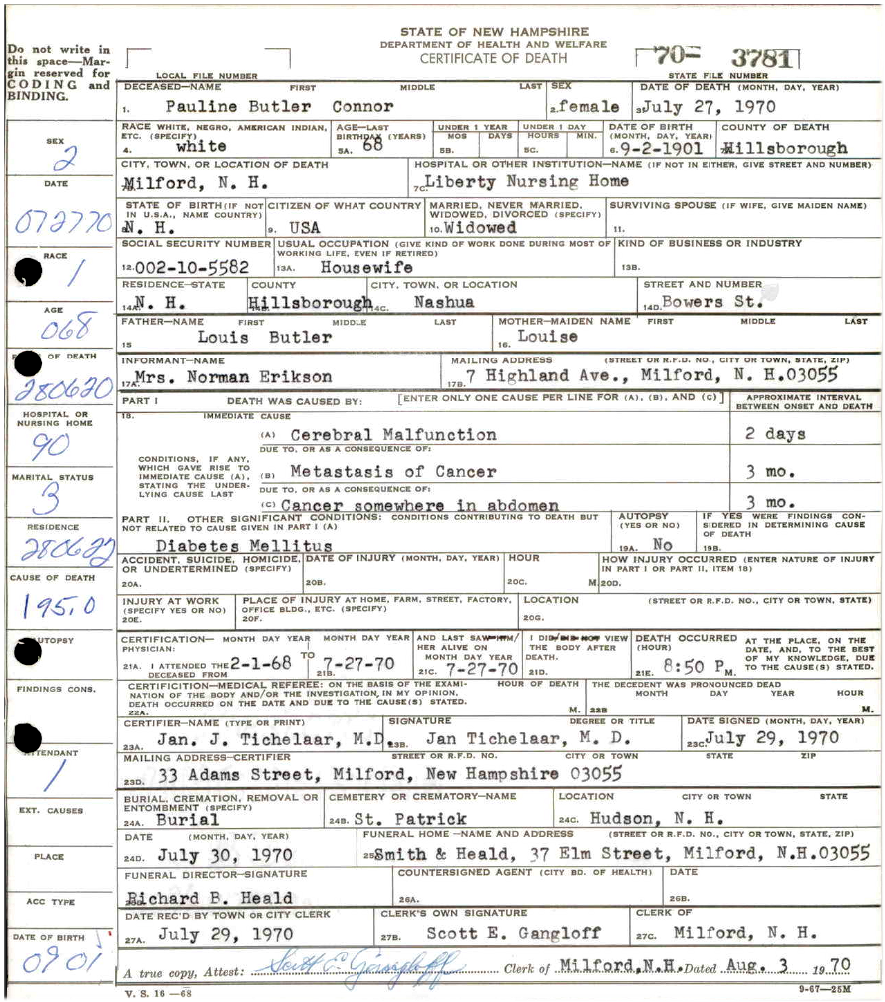 STATE OF NEW HAMPSHIRE
DEPARTMENT OF HEALTH AND WELFARE
CERTIFICATE OF DEATH
70- 3781
LOCAL FILE NUMBER STATE FILE NUMBER
Do not write in
this space—Mar-
gin reserved for
CODING and
BINDING.
DECEASED—NAME FIRST MIDDLE LAST SEX DATE OF DEATH (MONTH, DAY, YEAR)
1. Pauline Butler Connor 2. female 3. July 27, 1970
RACE WHITE, NEGRO, AMERICAN INDIAN, ETC. (SPECIFY) AGE—LAST BIRTHDAY (YEARS) UNDER 1 YEAR MOS DAYS UNDER 1 DAY HOURS MIN. DATE OF BIRTH (MONTH, DAY, YEAR) COUNTY OF DEATH
4. white 5A. 68 5B. 5C. 6. 9-2-1901 Hillsborough
CITY, TOWN, OR LOCATION OF DEATH HOSPITAL OR OTHER INSTITUTION—NAME (IF NOT IN EITHER, GIVE STREET AND NUMBER)
Milford, N. H. 7C. Liberty Nursing Home
STATE OF BIRTH (IF NOT IN U.S.A., NAME COUNTRY) CITIZEN OF WHAT COUNTRY MARRIED, NEVER MARRIED, WIDOWED, DIVORCED (SPECIFY) SURVIVING SPOUSE (IF WIFE, GIVE MAIDEN NAME)
N. H. 9. USA 10. Widowed 11.
SOCIAL SECURITY NUMBER USUAL OCCUPATION (GIVE KIND OF WORK DONE DURING MOST OF WORKING LIFE, EVEN IF RETIRED) KIND OF BUSINESS OR INDUSTRY
12. 002-10-5582 13A. Housewife 13B.
RESIDENCE—STATE COUNTY CITY, TOWN, OR LOCATION STREET AND NUMBER
14A. N. H. 14B. Hillsborough 14C. Nashua 14D. Bowers St.
FATHER—NAME FIRST MIDDLE LAST MOTHER—MAIDEN NAME FIRST MIDDLE LAST
15 Louis Butler 16. Louise
INFORMANT—NAME MAILING ADDRESS (STREET OR R.F.D. NO., CITY OR TOWN, STATE, ZIP)
17A. Mrs. Norman Erikson 17B. 7 Highland Ave., Milford, N. H. 03055
PART I DEATH WAS CAUSED BY: [ENTER ONLY ONE CAUSE PER LINE FOR (A), (B), AND (C)] APPROXIMATE INTERVAL BETWEEN ONSET AND DEATH
18. IMMEDIATE CAUSE
(A) Cerebral Malfunction 2 days
DUE TO, OR AS A CONSEQUENCE OF:
CONDITIONS, IF ANY, WHICH GAVE RISE TO IMMEDIATE CAUSE (A), STATING THE UNDERLYING CAUSE LAST
(B) Metastasis of Cancer 3 mo.
DUE TO, OR AS A CONSEQUENCE OF:
(C) Cancer somewhere in abdomen 3 mo.
PART II. OTHER SIGNIFICANT CONDITIONS: CONDITIONS CONTRIBUTING TO DEATH BUT NOT RELATED TO CAUSE GIVEN IN PART I (A) AUTOPSY (YES OR NO) IF YES WERE FINDINGS CONSIDERED IN DETERMINING CAUSE OF DEATH
Diabetes Mellitus 19A. No 19B.
ACCIDENT, SUICIDE, HOMICIDE, OR UNDERTERMINED (SPECIFY) DATE OF INJURY (MONTH, DAY, YEAR) HOUR HOW INJURY OCCURRED (ENTER NATURE OF INJURY IN PART I OR PART II, ITEM 18)
20A. 20B. 20C. M. 20D.
INJURY AT WORK (SPECIFY YES OR NO) PLACE OF INJURY AT HOME, FARM, STREET, FACTORY, OFFICE BLDG., ETC. (SPECIFY) LOCATION (STREET OR R.F.D. NO., CITY OR TOWN, STATE)
20E. 20F. 20G.
CERTIFICATION— MONTH DAY YEAR MONTH DAY YEAR AND LAST SAW HIM/HER ALIVE ON MONTH DAY YEAR I DID/DID NOT VIEW THE BODY AFTER DEATH. DEATH OCCURRED (HOUR) AT THE PLACE, ON THE DATE, AND, TO THE BEST OF MY KNOWLEDGE, DUE TO THE CAUSE(S) STATED.
PHYSICIAN:
21A. I ATTENDED THE DECEASED FROM 2-1-68 TO 21B. 7-27-70 21C. 7-27-70 21D. 21E. 8:50 P M.
CERTIFICITION—MEDICAL REFEREE: ON THE BASIS OF THE EXAMINATION OF THE BODY AND/OR THE INVESTIGATION, IN MY OPINION, DEATH OCCURRED ON THE DATE AND DUE TO THE CAUSE(S) STATED. HOUR OF DEATH THE DECEDENT WAS PRONOUNCED DEAD MONTH DAY YEAR HOUR
22A. M. 22B M.
CERTIFIER—NAME (TYPE OR PRINT) SIGNATURE DEGREE OR TITLE DATE SIGNED (MONTH, DAY, YEAR)
23A. Jan. J. Tichelaar, M.D. 23B. Jan Tichelaar, M. D. 23C. July 29, 1970
MAILING ADDRESS—CERTIFIER STREET OR R.F.D. NO. CITY OR TOWN STATE ZIP
23D. 33 Adams Street, Milford, New Hampshire 03055
BURIAL, CREMATION, REMOVAL OR ENTOMBMENT (SPECIFY) CEMETERY OR CREMATORY—NAME LOCATION CITY OR TOWN STATE
24A. Burial 24B. St. Patrick 24C. Hudson, N. H.
DATE (MONTH, DAY, YEAR) FUNERAL HOME—NAME AND ADDRESS (STREET OR R.F.D. NO., CITY OR TOWN, STATE, ZIP)
24D. July 30, 1970 25 Smith & Heald, 37 Elm Street, Milford, N.H. 03055
FUNERAL DIRECTOR—SIGNATURE COUNTERSIGNED AGENT (CITY BD. OF HEALTH) DATE
Richard B. Heald 26A. 26B.
DATE REC'D BY TOWN OR CITY CLERK CLERK'S OWN SIGNATURE CLERK OF
27A. July 29, 1970 27B. Scott E. Gangloff 27C. Milford, N. H.
A true copy, Attest: Scott E Gangloff Clerk of Milford, N.H. Dated Aug. 3 1970
V. S. 16 —68 9-67—25M
SEX
2
DATE
072770
RACE
1
AGE
068
OF DEATH
280620
HOSPITAL OR
NURSING HOME
90
MARITAL STATUS
3
RESIDENCE
280622
CAUSE OF DEATH
195.0
AUTOPSY
FINDINGS CONS.
ATTENDANT
1
EXT. CAUSES
PLACE
ACC TYPE
DATE OF BIRTH
0901